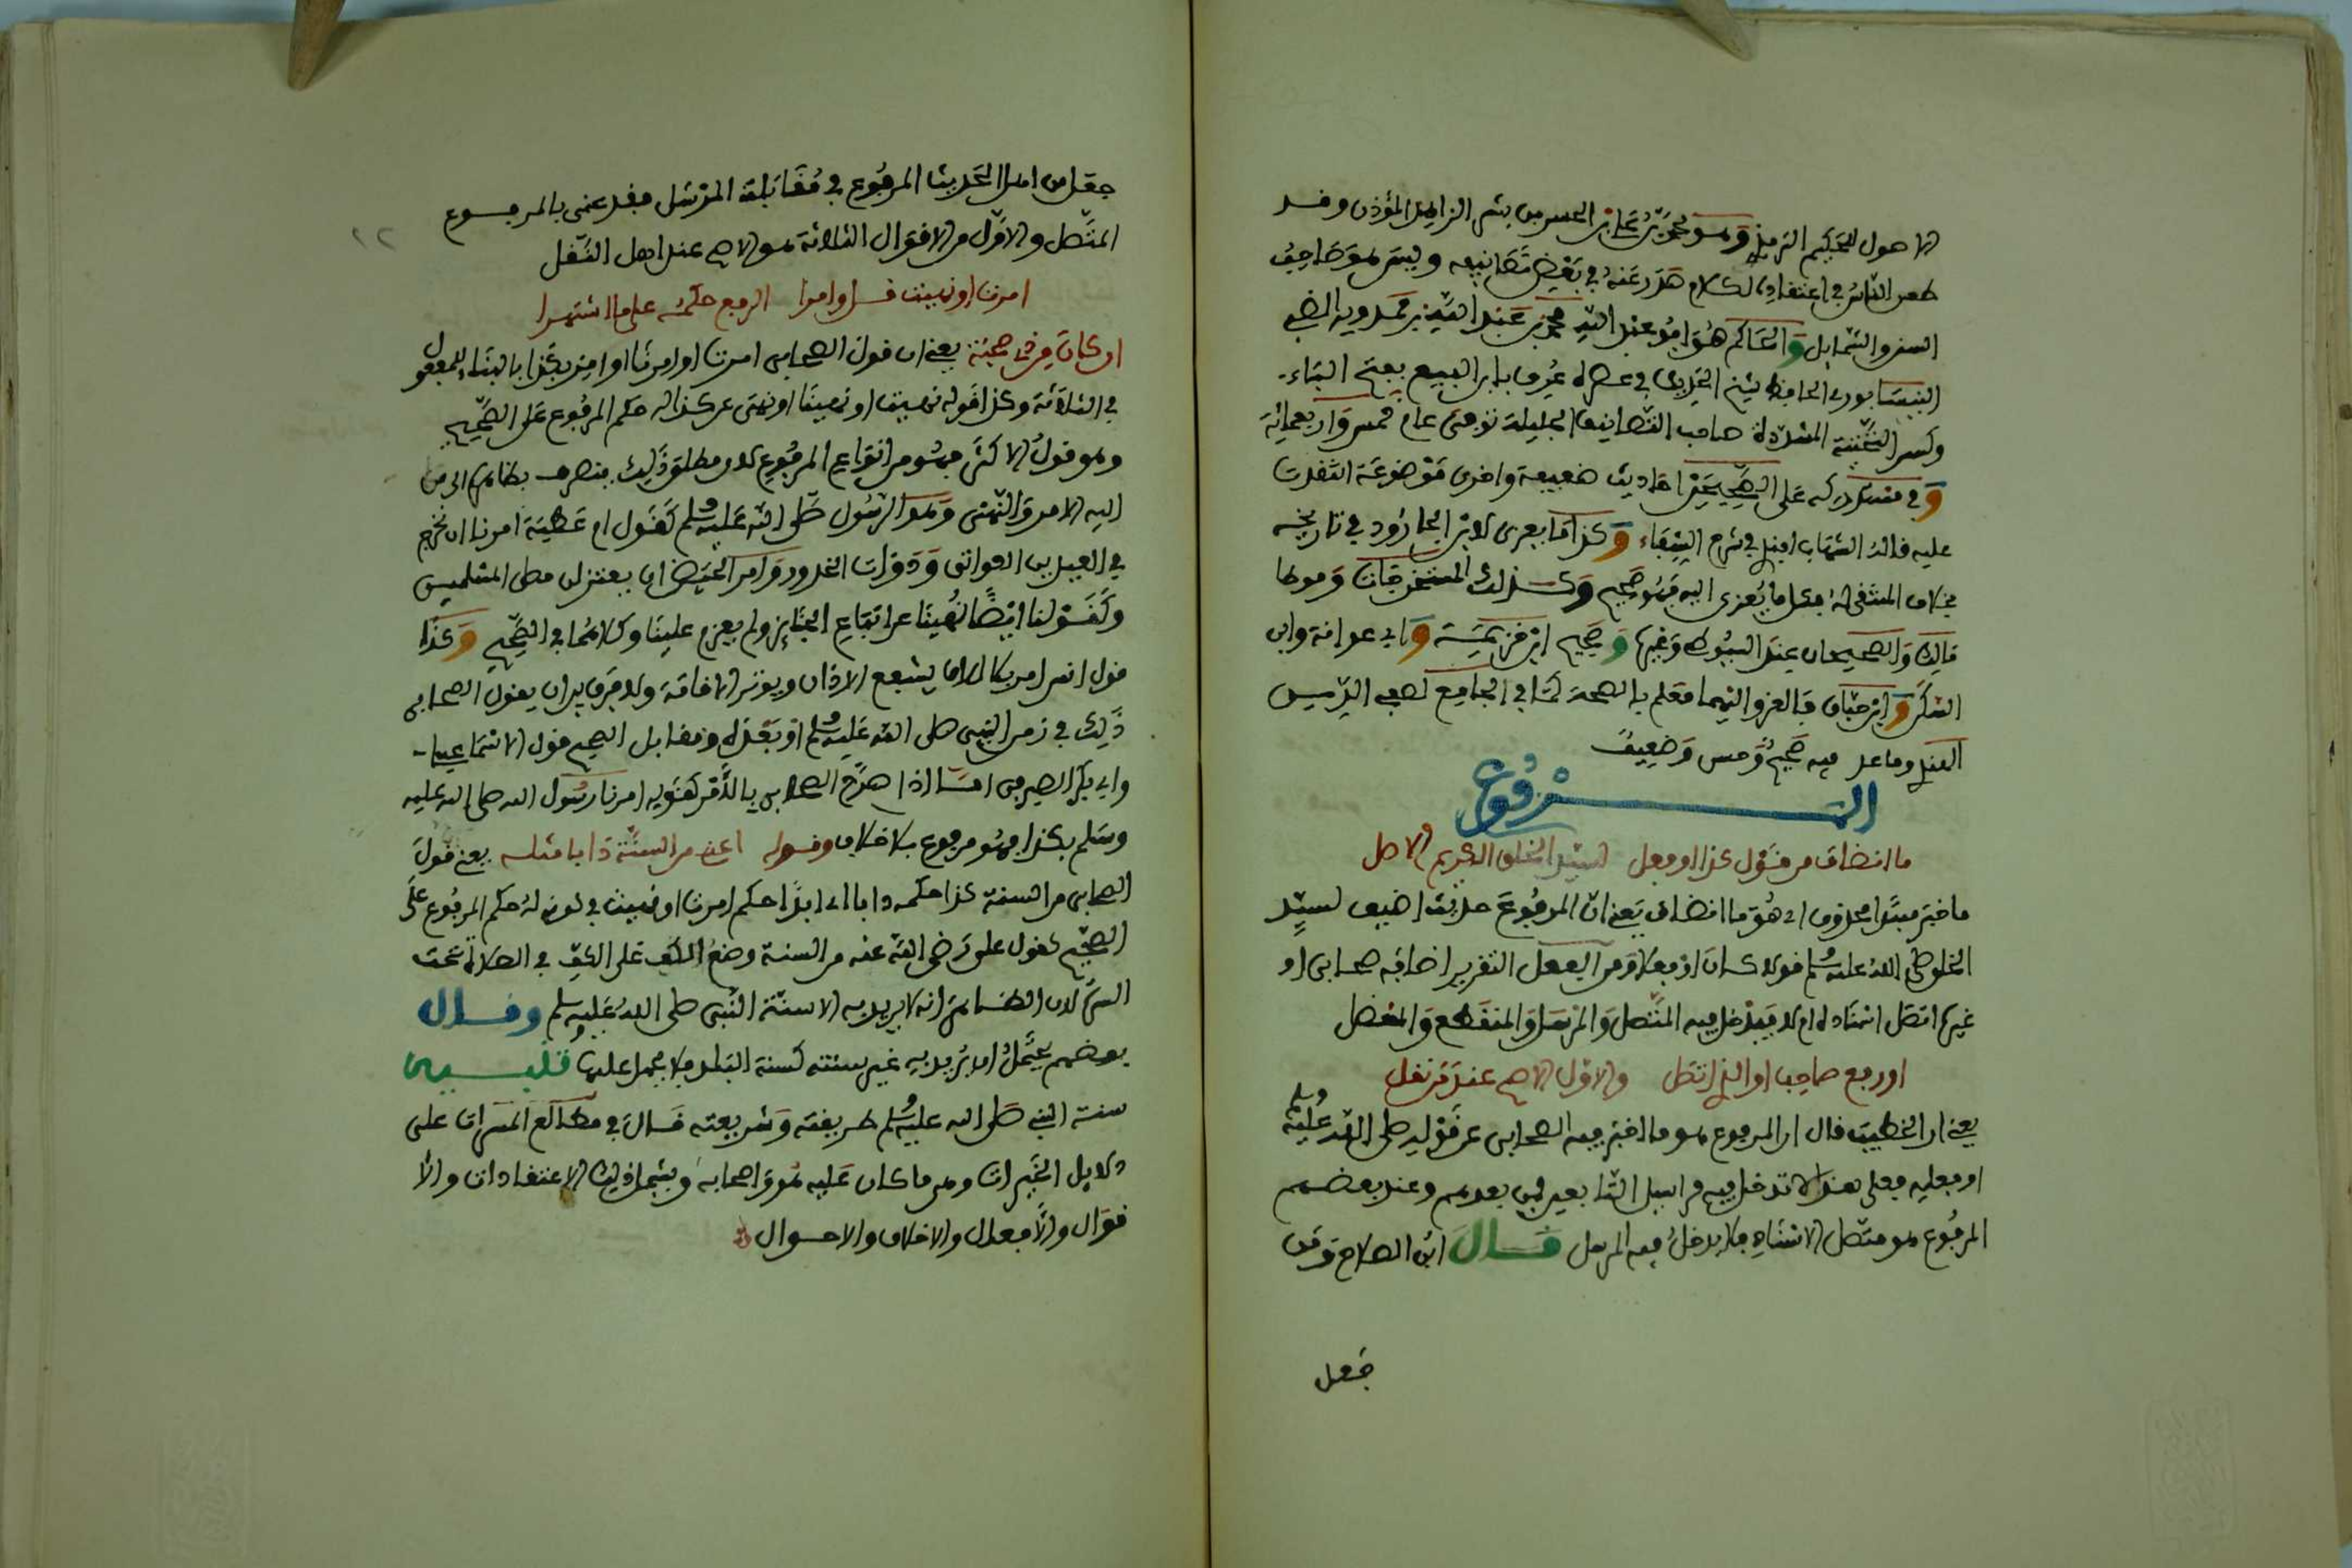 الاصول للحكيم الترمذي وهو محمد بن علي بن الحسن بن بشر الزاهد المؤذن وقد
طعن الناس في اعتقاده لكلام صدر عنه في بعض تصانيفه وليس هو صاحب
السنن والشمايل والحاكم هو ابو عبد الله محمد بن عبد الله بن محمدويه الضبي
النيسابوري الحافظ شيخ الحديث في عصره عرف بابن البيع بفتح الباء
وكسر التحتية المشددة صاحب التصانيف الجليلة توفي عام خمس واربعمائة
وفي مستدركه على الصحيحين احاديث ضعيفة واخرى موضوعة انتقدت
عليه قاله الشهاب افندي في شرح الشفاء وكذا ما يعزى لابن الجارود في تاريخه
بخلاف المنتقى له فكل ما يعزى اليه فهو صحيح وكذلك المستخرجات وموطا
مالك والصحيحان عند السيوطي وغيرها وصحيح ابن خزيمة وابي عوانة وابن
السكن وابن حبان فالعزو اليها معلم بالصحة كما في الجامع لصفي الدين
الهندي وما عد فيه صحيح وحسن وضعيف
المرفوع
ما انضاف من قول كذا او فعل لسيد الخلق الكريم الاصل
ما خبر مبتدا محذوف اي هو ما انضاف يعني ان المرفوع حديث اضيف لسيد
الخلق صلى الله عليه وسلم قولا كان او فعلا ومن الفعل التقرير اضافه صحابي او
غيره اتصل اسناده ام لا فيدخل فيه المتصل والمرسل والمنقطع والمعضل
او رفع صاحب او الذي اتصل والاول الاصح عند من نقل
يعني ان الخطيب قال ان المرفوع هو ما اخبر فيه الصحابي عن قوله صلى الله عليه وسلم
او فعله فعلى هذا لا تدخل فيه مراسيل التابعين فمن بعدهم وعند بعضهم
المرفوع هو متصل الاسناد فلا يدخل فيه المرسل قال ابن الصلاح ومن
جعل
جعل من اهل الحديث المرفوع في مقابلة المرسل فقد عنى بالمرفوع
المتصل والاول من الاقوال الثلاثة هو الاصح عند اهل النقل
امرت او نهيت قل او امرا الرفع حكمه على ما اشتهرا
او كان
يعني ان قول الصحابي امرت او امرنا او امر بكذا بالبناء للمفعول
في الثلاثة وكذا قوله نهيت او نهينا او نهى عن كذا له حكم المرفوع على الصحيح
وهو قول الاكثر فهو من انواع المرفوع لان مطلق ذلك ينصرف بظاهره الى من
اليه الامر والنهي وهو الرسول صلى الله عليه وسلم كقول ام عطية امرنا ان نخرج
في العيدين العواتق وذوات الخدور وامر الحيض ان يعتزلن مصلى المسلمين
وكقولنا ايضا نهينا عن اتباع الجنايز ولم يعزم علينا وكلاهما في الصحيح وكذا
قول انس امر بلال ان يشفع الاذان ويوتر الاقامة ولا فرق بين ان يقول الصحابي
ذلك في زمن النبي صلى الله عليه وسلم او بعده ومقابل الصحيح قول الاسماعيلي
وابي بكر الصيرفي اما اذا صرح الصحابي بالآمر كقوله امرنا رسول الله صلى الله عليه
وسلم بكذا فهو مرفوع بلا خلاف وقوله اعني من السنة ذا بامثله يعني قول
الصحابي من السنة كذا حكمه دايما اي ابدا حكم امرت او نهيت في كونه له حكم المرفوع على
الصحيح كقول علي رضي الله عنه من السنة وضع الكف على الكف في الصلاة تحت
السرة لان الظاهر انه لا يريد به الا سنة النبي صلى الله عليه وسلم وقال
بعضهم يحتمل ان يريد به غير سنته كسنة البلد فلا يحمل عليها تنبيه
سنة النبي صلى الله عليه وسلم طريقته وشريعته قال في مطالع المسرات على
دلايل الخيرات وهي ما كان عليه هو واصحابه ويشمل ذلك الاعتقادات والا
قوال والافعال والاخلاق والاحوال